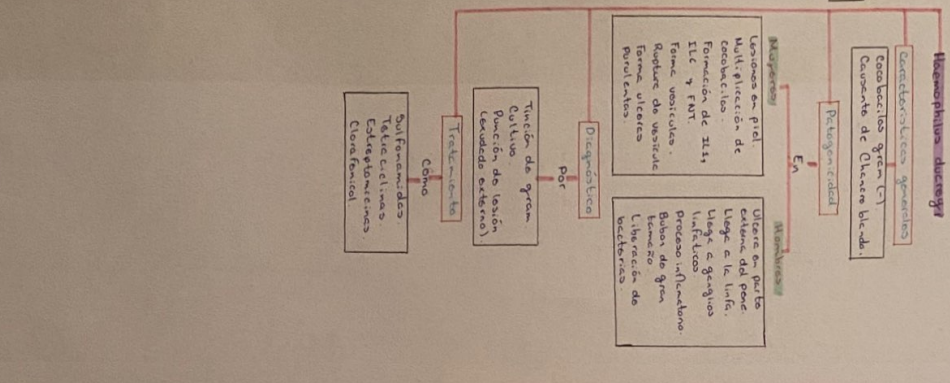 Haemophilus ducreyi
Características generales
Cocobacilos gram (-)
Causante de Chancro blando.
Patogenicidad
En
Mujeres
Lesiones en piel.
Multiplicación de
cocobacilos.
Formación de IL1,
IL6 y FNT.
Forma vesículas.
Ruptura de vesícula
Forma ulceras
purulentas.
Hombres
Ulcera en parte
externa del pene.
Llega a la linfa.
Llega a ganglios
linfáticos
Proceso inflamatorio.
Bubas de gran
tamaño
Liberación de
bacterias.
Diagnóstico
Por
Tinción de gram.
Cultivo.
Punción de lesión
(exudado externo).
Tratamiento
Como
Sulfonamidas.
Tetraciclinas.
Estreptomicinas.
Clorafenicol